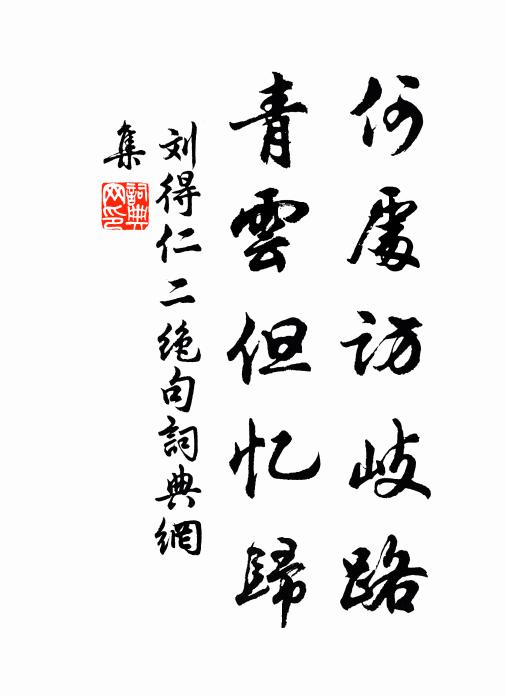 何處訪歧路
青雲但忆歸
刘得仁二绝句詞典網
集
詞典网印